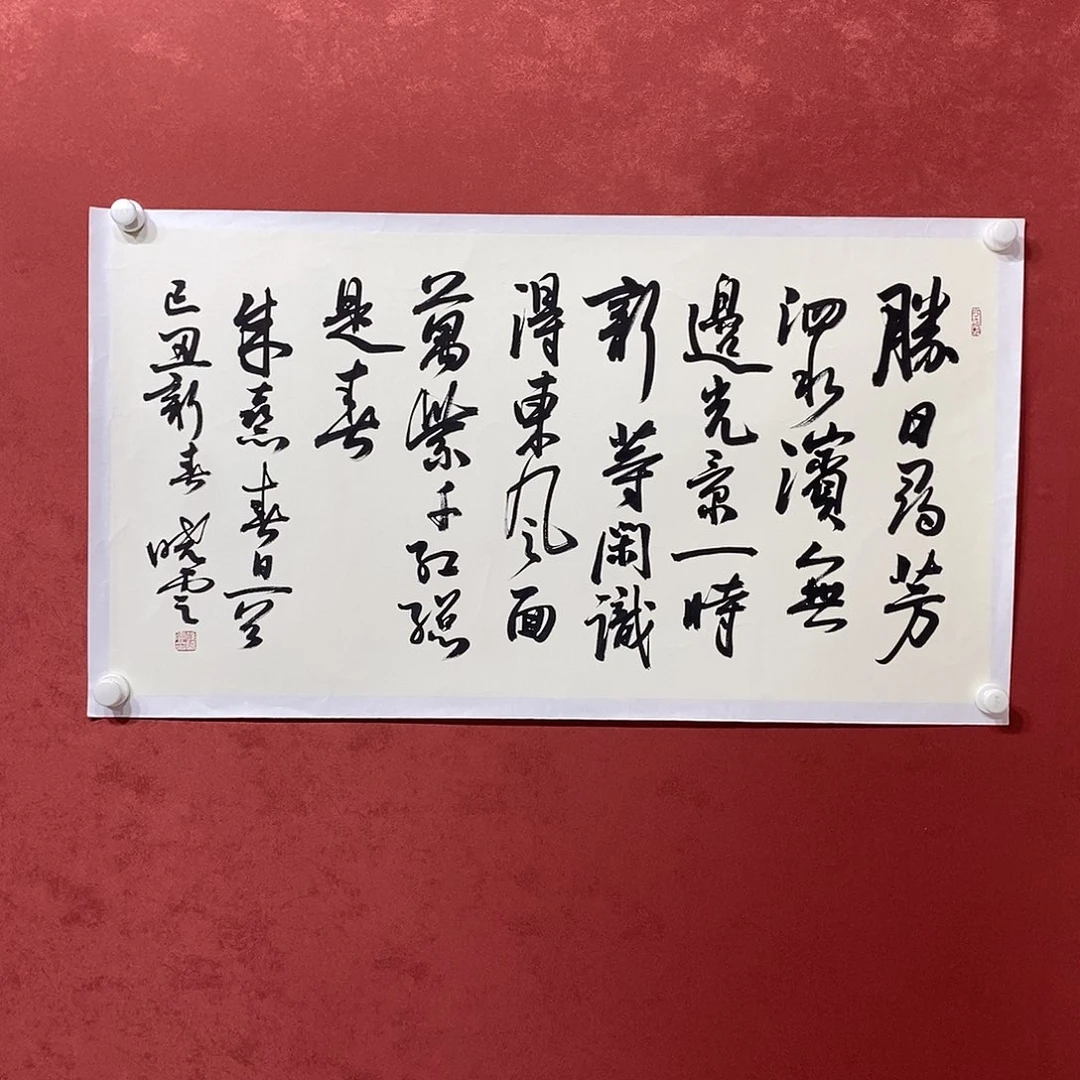 勝日尋芳
泗水濱無
邊光景一時
新等閑識
得東風面
萬紫千紅總
是春
朱熹春日一首
己丑新春曉雲